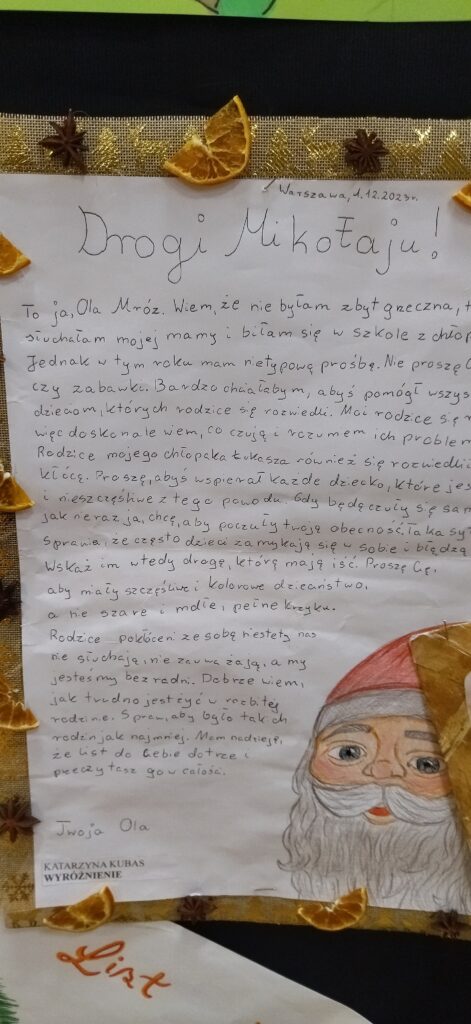 Warszawa, 1.12.2023r.
Drogi Mikołaju!
To ja, Ola Mróz. Wiem, że nie byłam zbyt grzeczna,
słuchałam mojej mamy i biłam się w szkole z
Jednak w tym roku mam nietypową prośbę. Nie proszę
czy zabawki. Bardzo chciałabym, abyś pomógł
dzieciom, których rodzice się rozwiedli. Moi rodzice się
więc doskonale wiem, co czują i rozumem ich
Rodzice mojego chłopaka Łukasza również się rozwiedli
kłócą. Proszę, abyś wspierał każde dziecko, które
i nieszczęśliwe z tego powodu. Gdy będę czuły się
jak nieraz ja, chcę, aby poczuły twoją obecność. Taka
sprawia, że często dzieci zamykają się w sobie i błędzą
Wskaż im wtedy drogę, którą mają iść. Proszę Cę,
aby miały szczęśliwe i kolorowe dzieciństwo,
a nie szare i mdłe, pełne krzyku.
Rodzice pokłóceni ze sobą niestety nas
nie słuchają, nie zauważają, a my
jesteśmy bezradni. Dobrze wiem,
jak trudno jest żyć w rozbitej
rodzinie. Spraw, aby było takich
rodzin jak najmniej. Mam nadzieję,
że list do Ciebie dotrze i
przeczytasz go w całości.
Twoja Ola
KATARZYNA KUBAS
WYRÓŻNIENIE
List